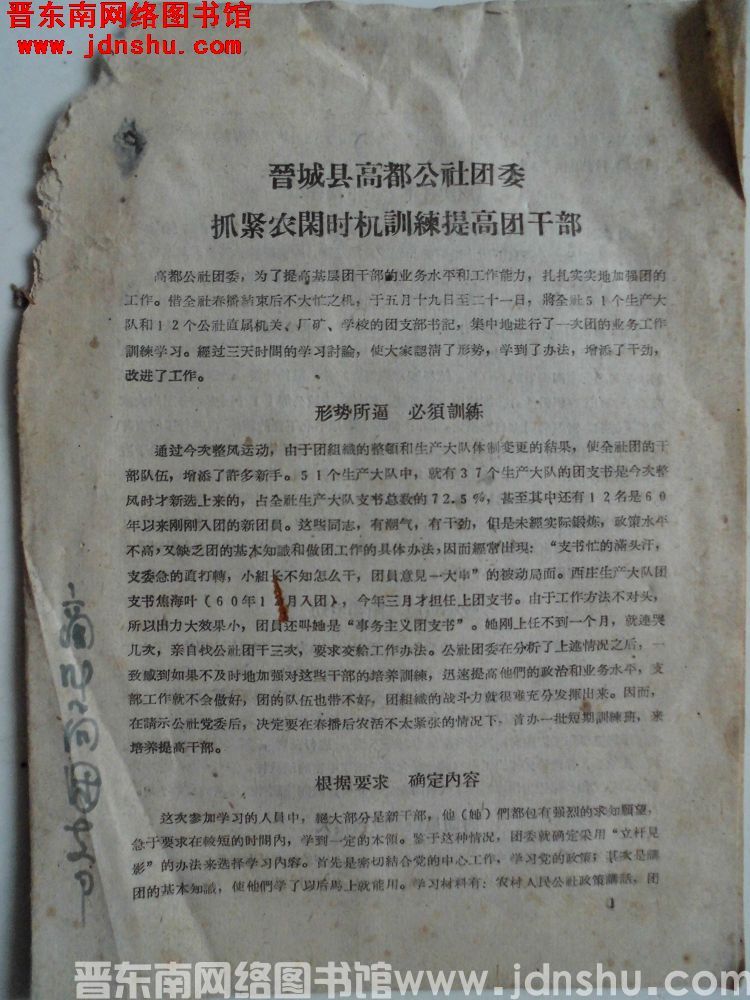 晋东南网络图书馆
www.jdnshu.com
晉城县高都公社团委
抓紧农閑时机訓練提高团干部
高都公社团委，为了提高基层团干部的业务水平和工作能力，扎扎实实地加强团的
工作。借全社春播結束后不大忙之机，于五月十九日至二十一日，將全社51个生产大
队和12个公社直属机关、厂矿、学校的团支部书記，集中地进行了一次团的业务工作
訓練学习。經过三天时間的学习討論，使大家認清了形势，学到了办法，增添了干劲，
改进了工作。
形势所逼　必須訓练
通过今次整风运动，由于团組織的整頓和生产大队体制变更的結果，使全社团的干
部队伍，增添了許多新手。51个生产大队中，就有37个生产大队的团支书是今次整
风时才新选上来的，占全社生产大队支书总数的72.5%，甚至其中还有12名是60
年以来刚刚入团的新团員。这些同志，有潮气，有干劲，但是未經实际鍛炼，政策水平
不高，又缺乏团的基本知識和做团工作的具体办法，因而經常出現：“支书忙的滿头汗，
支委急的直打轉，小組长不知怎么干，团員意見一大串”的被动局面。西庄生产大队团
支书焦海叶（60年12月入团），今年三月才担任上团支书。由于工作方法不对头，
所以出力大效果小，团員还叫她是“事务主义团支书”。她刚上任不到一个月，就連哭
几次，亲自找公社团干三次，要求交給工作办法。公社团委在分析了上述情况之后，一
致感到如果不及时地加强对这些干部的培养訓練，迅速提高他們的政治和业务水平，支
部工作就不会做好，团的队伍也带不好，团組織的战斗力就很难充分发揮出来。因而，
在請示公社党委后，决定要在春播后农活不太紧张的情况下，首办一批短期訓練班，来
培养提高干部。
根据要求　确定內容
这次参加学习的人員中，絕大部分是新干部，他（她）們都包有强烈的求知願望，
急于要求在較短的时間內，学到一定的本領。鉴于这种情况，团委就确定采用“立杆見
影”的办法来选择学习內容。首先是密切結合党的中心工作，学习党的政策；其次是講
团的基本知識，使他們学了以后馬上就能用。学习材料有：农村人民公社政策講話，团
1
晋东南网络图书馆www.jdnshu.com